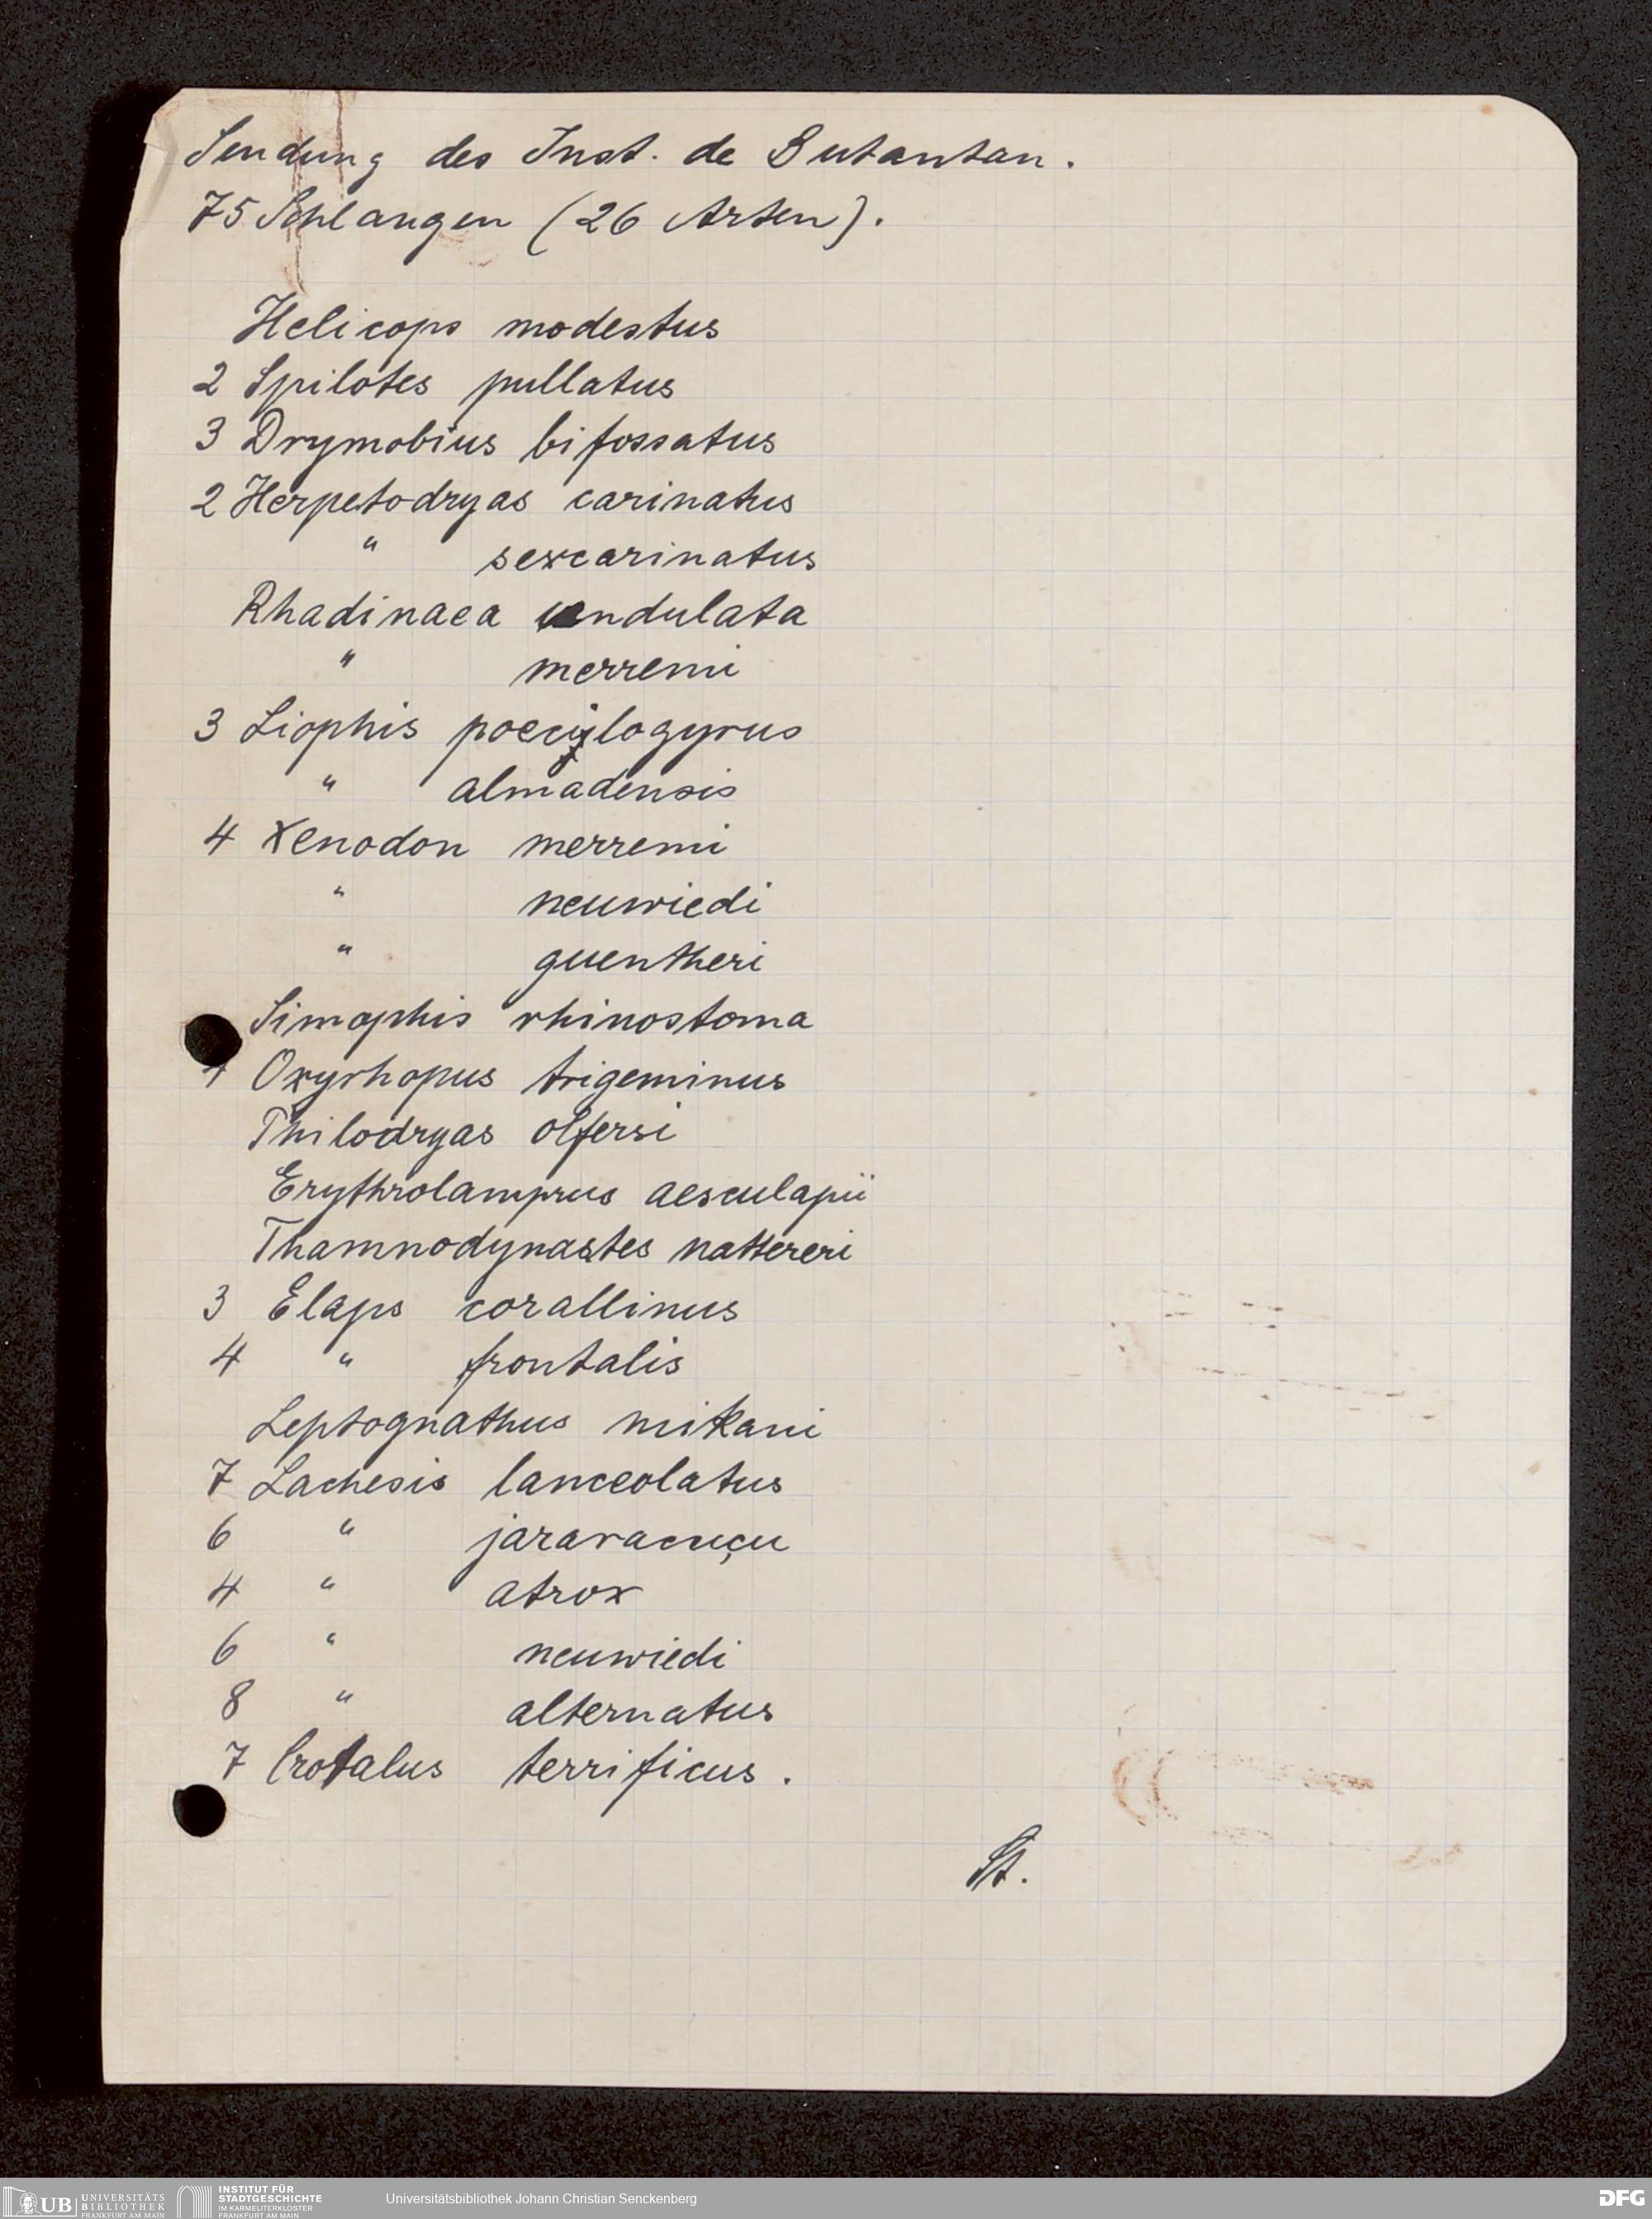 Sendung des Inst. de Butantan.
75 Schlangen (26 Arten).
Helicops modestus
2 Spilotes pullatus
3 Drymobius bifossatus
2 Herpetodryas carinatus
" sexcarinatus
Rhadinaea undulata
" merremi
3 Liophis poecilogyrus
" almadensis
4 Xenodon merremi
" neuwiedi
" guentheri
Simophis rhinostoma
Oxyrhopus trigeminus
Philodryas olfersi
Erythrolamprus aesculapii
Thamnodynastes nattereri
3 Elaps corallinus
4 " frontalis
Leptognathus mikani
7 Lachesis lanceolatus
6 " jararacuçu
4 " atrox
6 " neuwiedi
8 " alternatus
7 Crotalus terrificus.
St.
UB UNIVERSITÄTS BIBLIOTHEK FRANKFURT AM MAIN
INSTITUT FÜR STADTGESCHICHTE IM KARMELITERKLOSTER FRANKFURT AM MAIN
Universitätsbibliothek Johann Christian Senckenberg
DFG